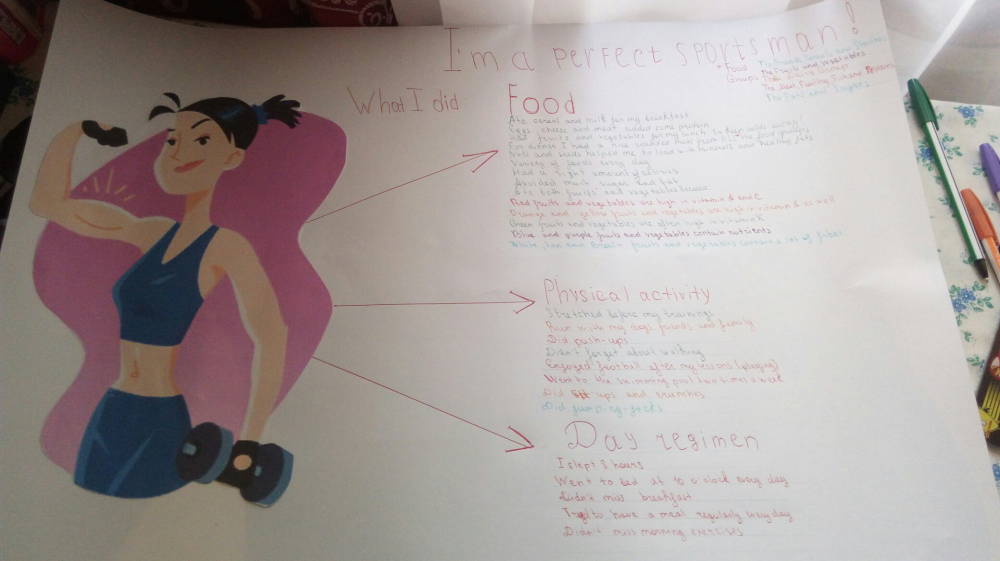 I'm a perfect sportsman!
What I did:
Food
Groups
The Fruits and vegetables
The Fats and
Food
Ate cereal and milk for my breakfast
Eggs, cheese and meat added some protein
fruits and vegetables for my lunch
For dinner I had a
Nuts and seeds helped me to load with and healthy fats
Variety of foods every day
Had a right amount of
Avoided much sugar and fat
Ate both fruits and vegetables because
Red fruits and vegetables are high in vitamin A and C
Orange and yellow fruits and vegetables are high in vitamin as well
Green fruits and vegetables are often high in vitamin K
Blue and purple fruits and vegetables contain nutrients
White, tan and brown fruits and vegetables contain a lot of fiber
Physical activity
Stretched before my trainings
Run with my dogs, friends and family
Did push-ups
Didn't forget about walking
Enjoyed football after my lessons (playing)
Went to the swimming pool two times a week
Did ups and crunches
Did jumping-jacks
Day regimen
I slept 8 hours
Went to bed at 10 o'clock every day
Didn't miss breakfast
Tryed to have a meal regularly every day
Didn't miss morning exercises